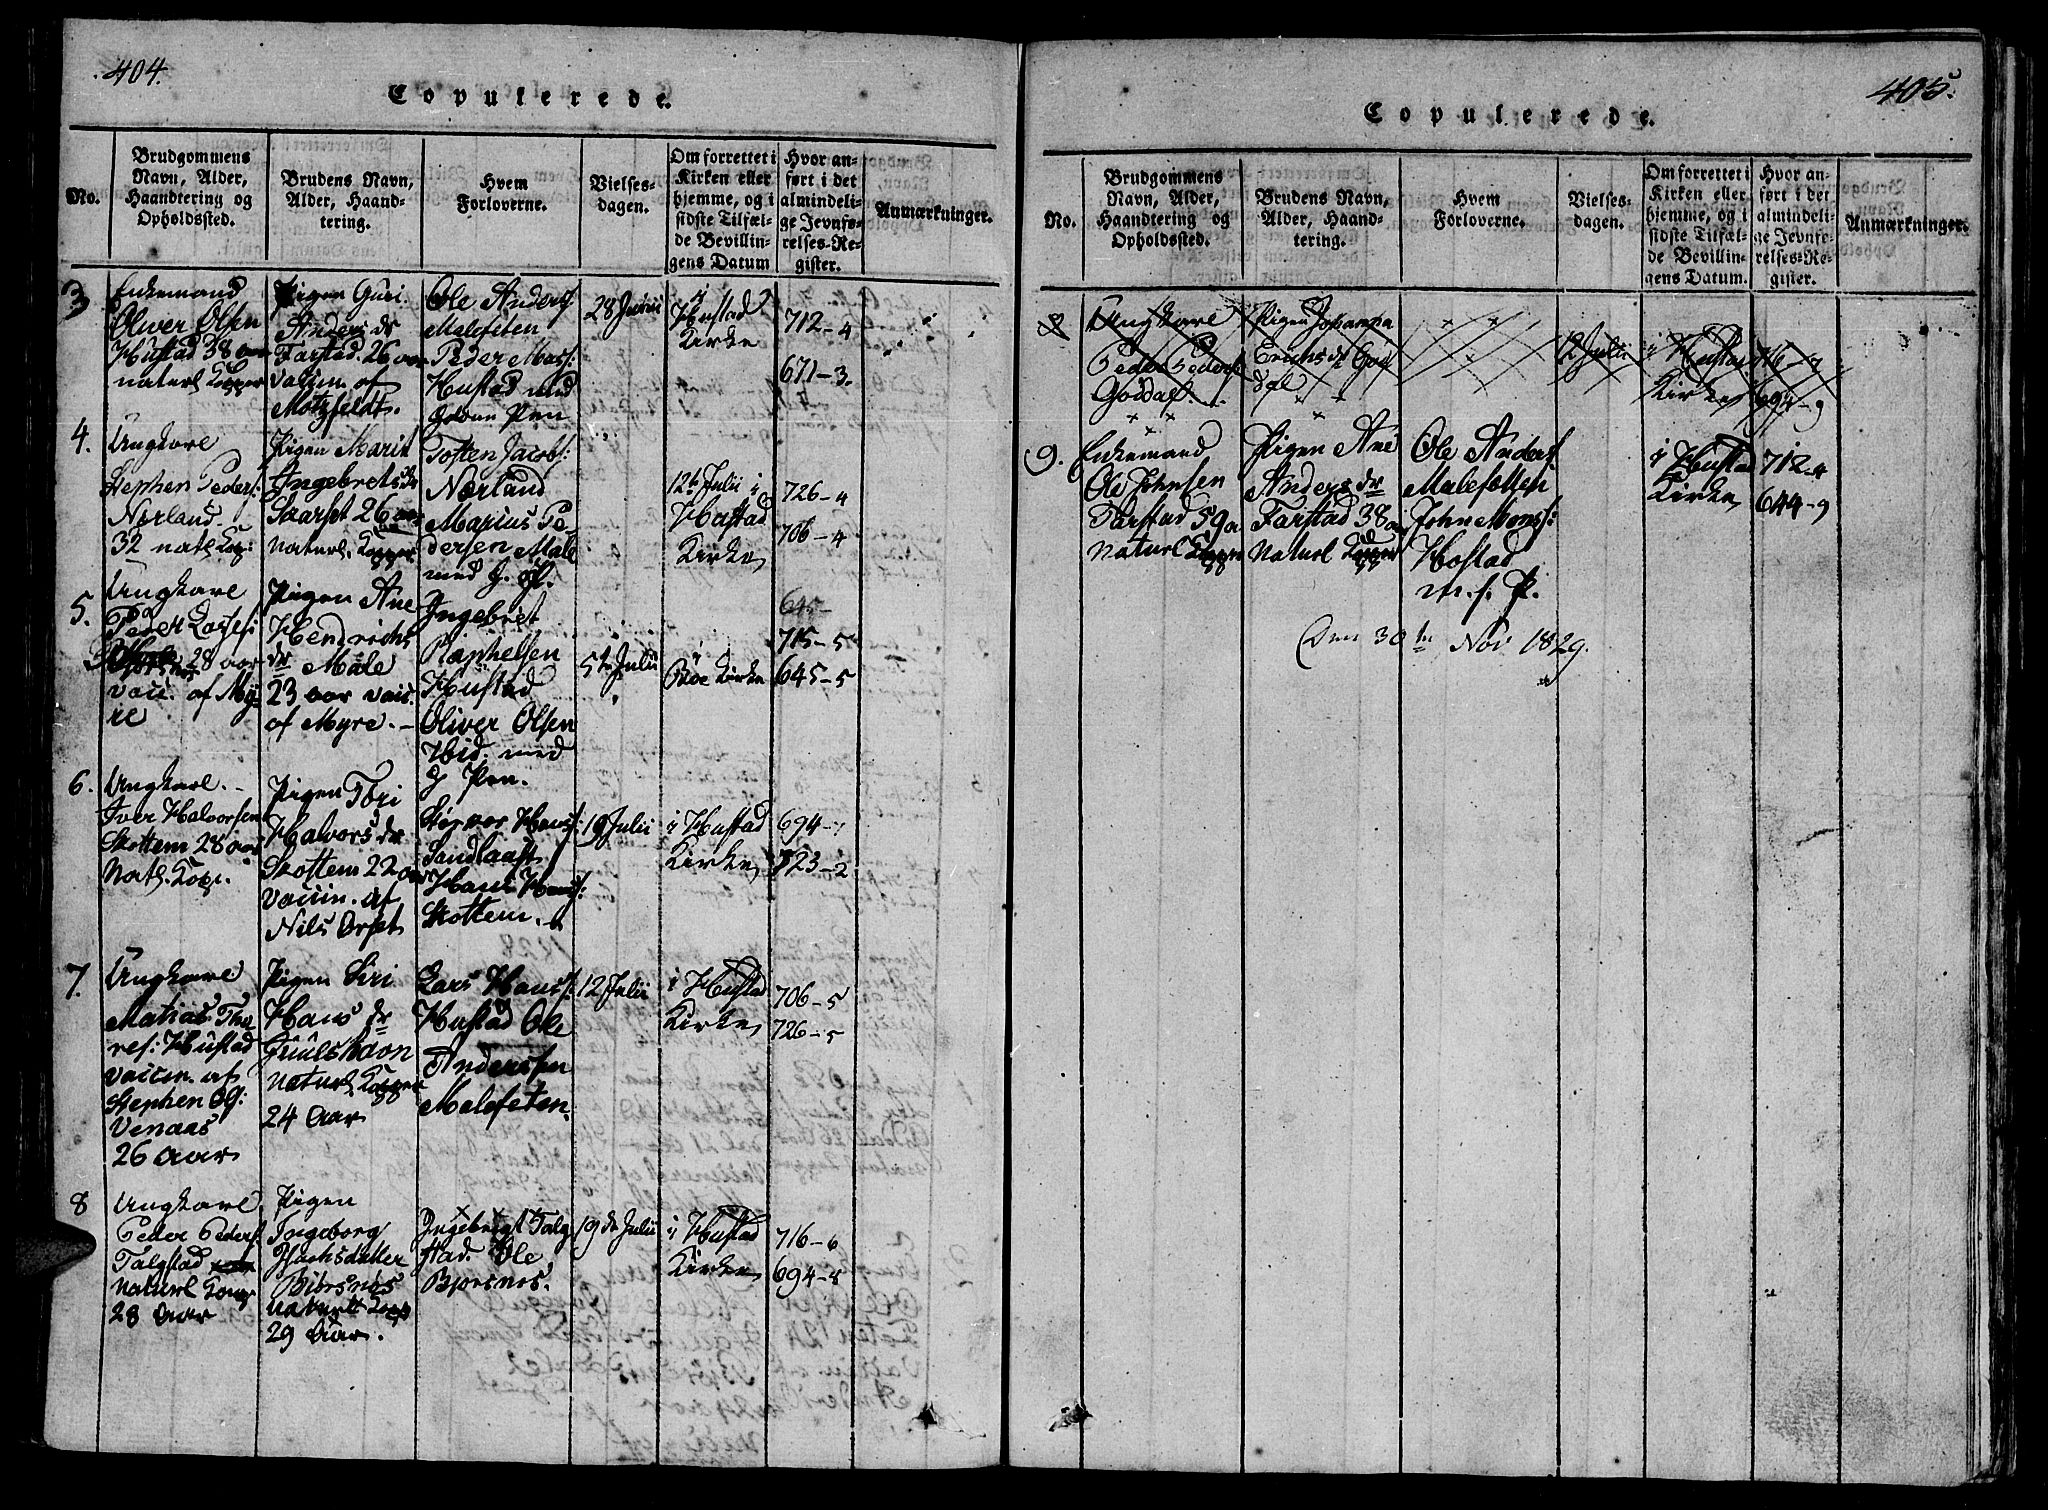 404.
Copulerede.
No.
Brudgommens
Navn, Alder,
Haandtering og
Opholdssted.
Brudens Navn,
Alder, Haand-
tering.
Hvem
Forloverne.
Vielses-
dagen.
Om forrettet i
Kirken eller
hjemme, og i
sidste Tilfæl-
de Bevillin-
gens Datum
Hvor an-
ført i det
almindeli-
ge Jevnfø-
relses-Re-
gister.
Anmærkninger.
3
Enkemand
Oliver Olsen
Hustad 38 aar
naturl Kopper
Pigen Guri
Anders dr
Farstad 26 aar
vaccin. af
Motzfeldt.
Ole Anders:
Malefeten
Peder Mons:
Hustad med
28 Junii
i Hustad
Kirke
712-4
671-3.
4.
Ungkarl
Stephen Peders:
Norland
32 natl Kop:
Pigen Marit
Ingebrets dr
Skarset 26 aar
naturl. Kopper
Tosten Jacobs:
Norland
Marius Pe-
dersen Male
med
12te Julii i
Hustad
Kirke
726-4
706-4
5.
Ungkarl
Peder Lasses:
28 aar
vacc. af My-
re
Pigen Ane
Hendrichs
dr Male
23 aar vacc.
af Myre.
Ingebret
Raphelsen
Hustad
Oliver Olsen
Ibid. med
Pen.
5te Julii
Bøe Kirke
645-
715-5
645-5
6.
Ungkarl.
Iver Halvorsen
Skottem 28 aar
Natl. Kop.
Pigen Tori
Halvors dr
Skottem 22 aar
vaccin. af
Nils Orset
Hans:
Sandlaast
Hans Hans:
Skottem.
19 Julii
i Hustad
Kirke
694-7
723-2
7.
Ungkarl
Matias Tho
res: Hustad
vaccin. af
Stephen Og:
Venaas
26 Aar
Pigen Siri
Hans dr
Juulshavn
naturl. Kopper
24 Aar
Lars Hans:
Hustad Ole
Anderssen
Malefeten
12 Julii
i Hustad
Kirke
706-5
726-5
8
Ungkarl
Peder Peders:
Talgstad
naturl Kopper
28 Aar
Pigen
Ingeborg
Isachsdatter
Biørsnos
naturl Kopp
29 Aar.
Ingebrigt Talg
stad. Ole
Bjørsnos.
19de Julii
i Hustad
Kirke
716-6
694-8
405.
Copulerede.
No.
Brudgommens
Navn, Alder,
Haandtering og
Opholdssted.
Brudens Navn,
Alder, Haand-
tering.
Hvem
Forloverne.
Vielses-
dagen.
Om forrettet i
Kirken eller
hjemme, og i
sidste Tilfæl-
de Bevillin-
gens Datum.
Hvor an-
ført i det
almindeli-
ge Jevnfø-
relses-Re-
gister.
Anmærkninger.
8
Ungkarl
Peder Peders:
Goddal
Pigen Johanna
Erichs dr God
dal
12 Julii
i Hustad
Kirke
716-7
694-9
9.
Enkemand
Ole Johnsen
Farstad 59 a
naturl Koppr
Pigen Ane
Anders dr
Farstad 38 aar
Naturl Kopper
Ole Anders:
Malefotten
John Mons:
Hostad
m. f. P.
i Hustad
Kirke
712-4
644-9
Den 30te Nov 1829.